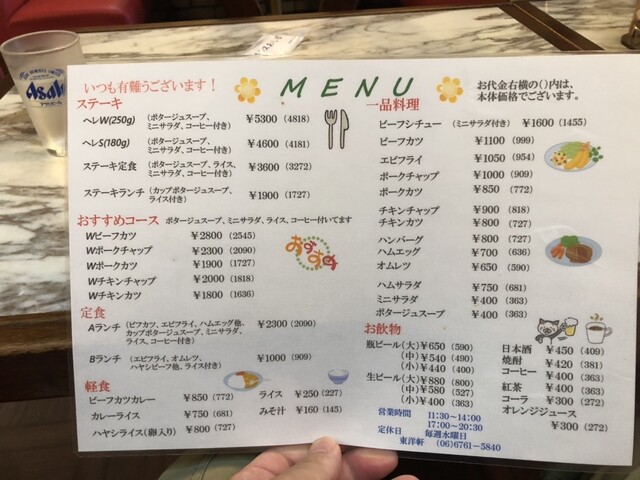 Asahi
いつも有難うございます！
MENU
お代金右横の()内は、
本体価格でございます。
ステーキ
ヘレW(250g) (ポタージュスープ、ミニサラダ、コーヒー付き) ¥5300 (4818)
ヘレS(180g) (ポタージュスープ、ミニサラダ、コーヒー付き) ¥4600 (4181)
ステーキ定食 (ポタージュスープ、ライス、ミニサラダ、コーヒー付き) ¥3600 (3272)
ステーキランチ (カップポタージュスープ、ライス付き) ¥1900 (1727)
おすすめコース ポタージュスープ、ミニサラダ、ライス、コーヒー付いてます
Wビーフカツ ¥2800 (2545)
Wポークチャップ ¥2300 (2090)
Wポークカツ ¥1900 (1727)
Wチキンチャップ ¥2000 (1818)
Wチキンカツ ¥1800 (1636)
おすすめ
定食
Aランチ (ビフカツ、エビフライ、ハムエッグ他、カップポタージュスープ、ミニサラダ、ライス、コーヒー付き) ¥2300 (2090)
Bランチ (エビフライ、オムレツ、ハヤシビーフ他、ライス付き) ¥1000 (909)
軽食
ビーフカツカレー ¥850 (772)
カレーライス ¥750 (681)
ハヤシライス(卵入り) ¥800 (727)
ライス ¥250 (227)
みそ汁 ¥160 (145)
一品料理
ビーフシチュー (ミニサラダ付き) ¥1600 (1455)
ビーフカツ ¥1100 (999)
エビフライ ¥1050 (954)
ポークチャップ ¥1000 (909)
ポークカツ ¥850 (772)
チキンチャップ ¥900 (818)
チキンカツ ¥800 (727)
ハンバーグ ¥800 (727)
ハムエッグ ¥700 (636)
オムレツ ¥650 (590)
ハムサラダ ¥750 (681)
ミニサラダ ¥400 (363)
ポタージュスープ ¥400 (363)
お飲物
瓶ビール(大) ¥650 (590)
(中) ¥540 (490)
(小) ¥440 (400)
生ビール(大) ¥880 (800)
(中) ¥580 (527)
(小) ¥400 (363)
日本酒 ¥450 (409)
焼酎 ¥420 (381)
コーヒー ¥400 (363)
紅茶 ¥400 (363)
コーラ ¥300 (272)
オレンジジュース ¥300 (272)
営業時間 11:30〜14:00
17:00〜20:30
定休日 毎週水曜日
東洋軒 (06)6761-5840